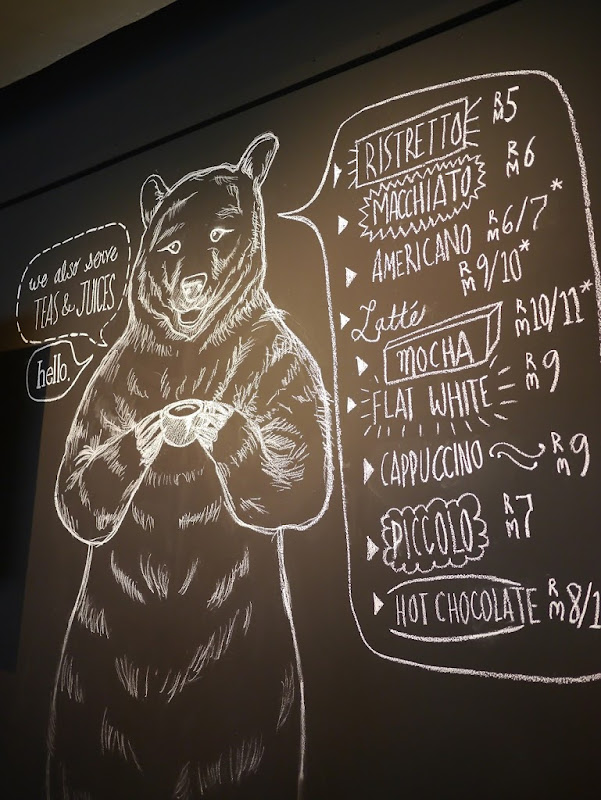 we also serve
TEAS & JUICES
hello.
RISTRETTO RM5
MACCHIATO RM6
AMERICANO RM6/7*
Latté RM9/10*
MOCHA RM10/11*
FLAT WHITE RM9
CAPPUCCINO RM9
PICCOLO RM7
HOT CHOCOLATE RM8/1